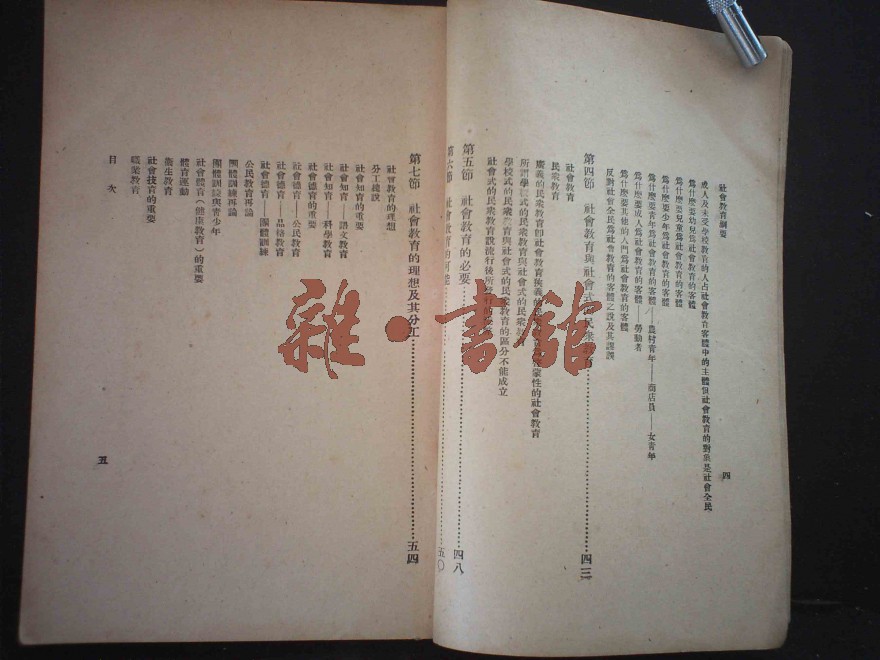 社會教育綱要
成人及未受學校教育的人占社會教育客體中的主體但社會教育的對象是社會全民
為什麼要幼兒為社會教育的客體
為什麼要兒童為社會教育的客體
為什麼要少年為社會教育的客體
為什麼要青年為社會教育的客體——農村青年——商店員——女青年
為什麼要成人為社會教育的客體——勞動者
為什麼要其他的人們為社會教育的客體
反對社會全民為社會教育的客體之說及其謬誤
四
第四節 社會教育與社會式的民眾教育……四三
社會教育
民眾教育
廣義的民眾教育即社會教育狹義的民眾教育 蒙性的社會教育
所謂學校式的民眾教育與社會式的民眾教
學校式的民眾教育與社會式的民眾教育的區分不能成立
社會式的民眾教育說流行後所發
第五節 社會教育的必要……四八
第六節 社會教育的可能……五〇
第七節 社會教育的理想及其分工……五四
社會教育的理想
分工總說
社會知育的重要
社會知育——語文教育
社會知育——科學教育
社會德育的重要
社會德育——公民教育
社會德育——品格教育
社會德育——團體訓練
公民教育再論
團體訓練再論
團體訓練與青少年
社會體育(健康教育)的重要
體育運動
衞生教育
社會技育的重要
職業教育
目次
五
雜·書館